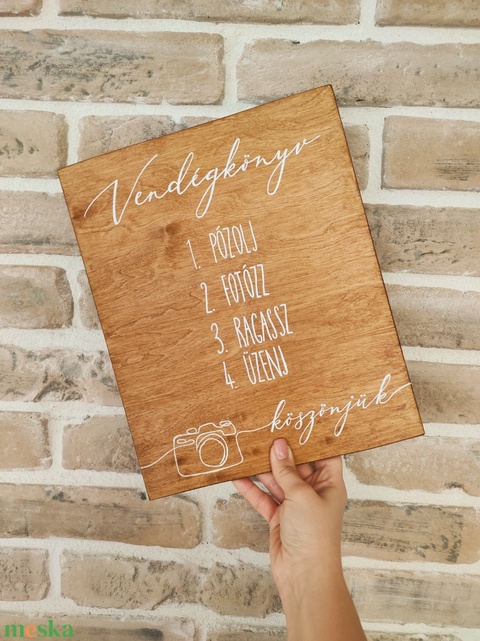 Vendégkönyv
1. PÓZOLJ
2. FOTÓZZ
3. RAGASSZ
4. ÜZENJ
köszönjük
meska